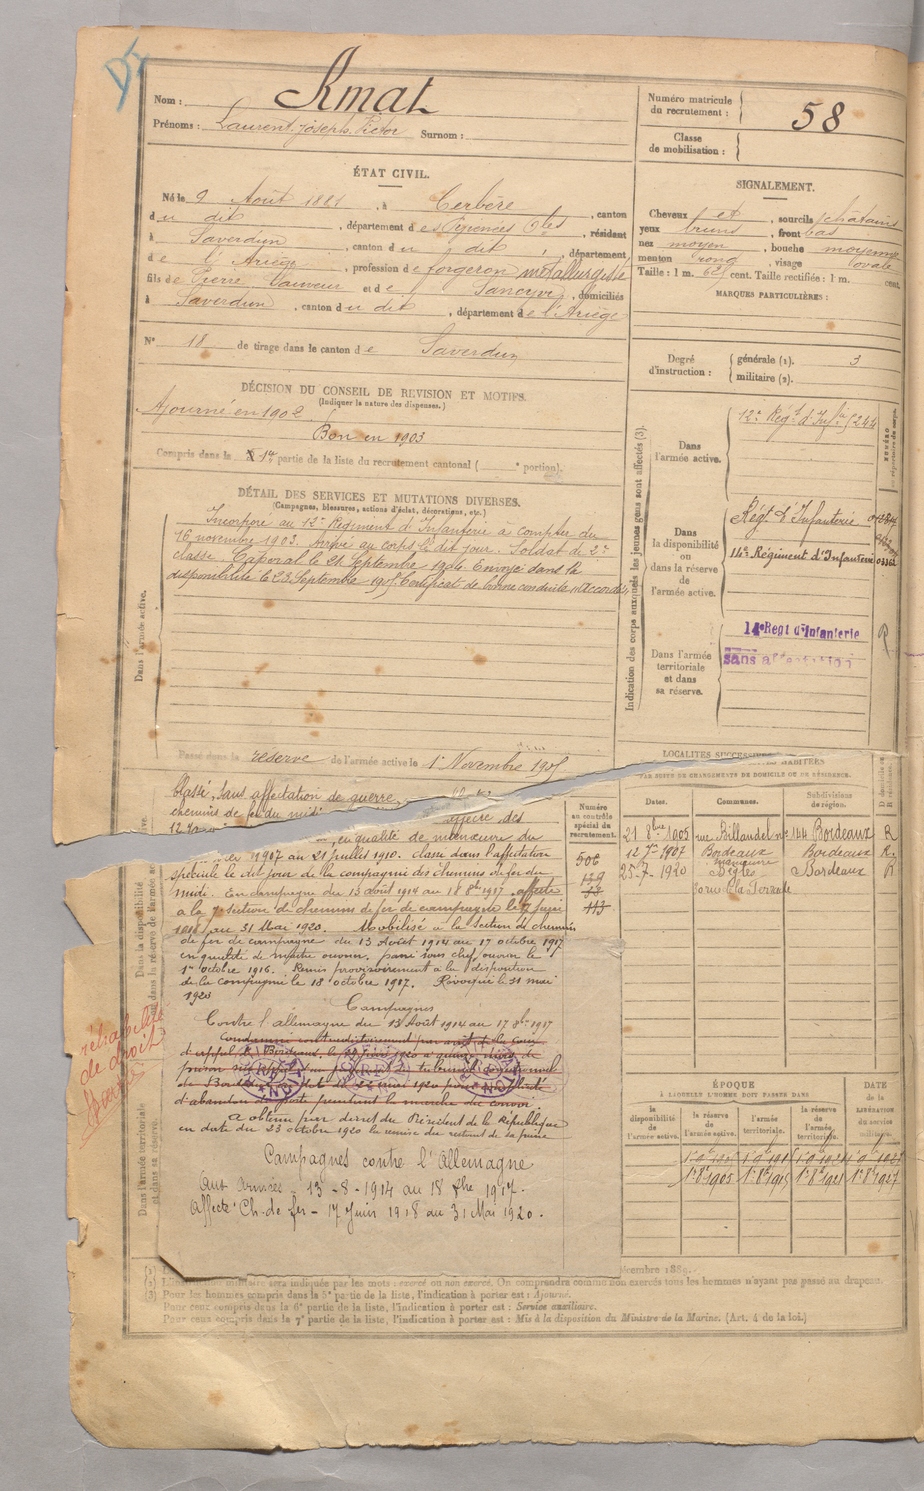 Nom : Amat
Prénoms : Laurent, Joseph, Victor Surnom :
Numéro matricule du recrutement : 58
Classe de mobilisation :
ÉTAT CIVIL.
Né le 9 Août 1881, à Cerbère, canton
du dit, département des Pyrénées Otles, résidant
à Saverdun, canton du dit, département
de l'Ariège, profession de forgeron métallurgiste
fils de Pierre Sauveur et de, domiciliés
à Saverdun, canton du dit, département de l'Ariège
N° 18 de tirage dans le canton de Saverdun
SIGNALEMENT.
Cheveux et, sourcils chatains
yeux bruns, front bas
nez moyen, bouche moyenne
menton rond, visage ovale
Taille : 1 m. 65 cent. Taille rectifiée : 1 m. cent.
MARQUES PARTICULIÈRES :
Degré d'instruction : générale (1). 3
militaire (2).
DÉCISION DU CONSEIL DE REVISION ET MOTIFS.
(Indiquer la nature des dispenses.)
Ajourné en 1902
Bon en 1903
Compris dans la 1re partie de la liste du recrutement cantonal ( e portion).
DÉTAIL DES SERVICES ET MUTATIONS DIVERSES.
(Campagnes, blessures, actions d'éclat, décorations, etc.)
Incorporé au 12e Régiment d'Infanterie à compter du
16 novembre 1903. Arrivé au corps le dit jour. Soldat de 2e
classe. Caporal le 21 Septembre 1904. Envoyé dans la
disponibilité le 23 Septembre 1905. Certificat de bonne conduite "Accordé".
Dans l'armée active.
Passé dans la réserve de l'armée active le 1er Novembre 1905
Indication des corps auxquels les jeunes gens sont affectés (3).
Dans l'armée active.
12e Régt d'Infie
Dans la disponibilité ou dans la réserve de l'armée active.
Régt d'Infanterie
14e Régiment d'Infanterie 03362
Dans l'armée territoriale et dans sa réserve.
14e Regt d'Infanterie
sans affectation
LOCALITÉS SUCCESSIVES HABITÉES
PAR SUITE DE CHANGEMENTS DE DOMICILE OU DE RÉSIDENCE.
Numéro au contrôle spécial du recrutement.
Dates. Communes. Subdivisions de région.
21 8bre 1905 rue Billaudel no 144 Bordeaux R
12 7bre 1907 Bordeaux Bordeaux R.
25-7-1920 Bègles Bordeaux R
506
113
classé, sans affectation de guerre
chemins de fer du midi
en qualité de manœuvre du
1907 au 21 juillet 1910. classé dans l'affectation
spéciale le dit jour de la compagnie des chemins de fer du
midi. En campagne du 13 août 1914 au 18 8bre 1917 affecté
à la 7e section de chemins de fer de campagne le 17 juin
1918 au 31 Mai 1920. Mobilisé à la section de chemins
de fer de campagne du 13 Août 1914 au 17 octobre 1917
en qualité de maître ouvrier. passé sous chef ouvrier le
1er octobre 1916. Remis provisoirement à la disposition
de la compagnie le 18 octobre 1917. Révoqué le 31 mai
1920
Campagnes
Contre l'allemagne du 13 Août 1914 au 17 8bre 1917
Condamné contradictoirement par arrêt de la Cour
d'appel de Bordeaux, le juin 1920 à quinze jours de
prison
de Bordeaux le 22 mai 1920 pour
d'abandon de poste pendant la marche du convoi
A obtenu par décret du Président de la République
en date du 23 octobre 1920 la remise du restant de sa peine
Campagnes contre l'Allemagne
Aux Armées - 13-8-1914 au 18 8bre 1917.
Affecté Ch. de fer - 17 Juin 1918 au 31 Mai 1920.
réhabilité
de droit
Dans l'armée territoriale
ÉPOQUE
À LAQUELLE L'HOMME DOIT PASSER DANS
la disponibilité de l'armée active. la réserve de l'armée active. l'armée territoriale. la réserve de l'armée territoriale.
DATE de la LIBÉRATION du service militaire.
1er 8bre 1905 1er 8bre 1915 1er 8bre 1921 1er 8bre 1927
(2) L'instruction militaire sera indiquée par les mots : exercé ou non exercé. On comprendra comme non exercés tous les hommes n'ayant pas passé au drapeau.
(3) Pour les hommes compris dans la 5e partie de la liste, l'indication à porter est : Ajourné.
Pour ceux compris dans la 6e partie de la liste, l'indication à porter est : Service auxiliaire.
Pour ceux compris dans la 7e partie de la liste, l'indication à porter est : Mis à la disposition du Ministre de la Marine. (Art. 4 de la loi.)